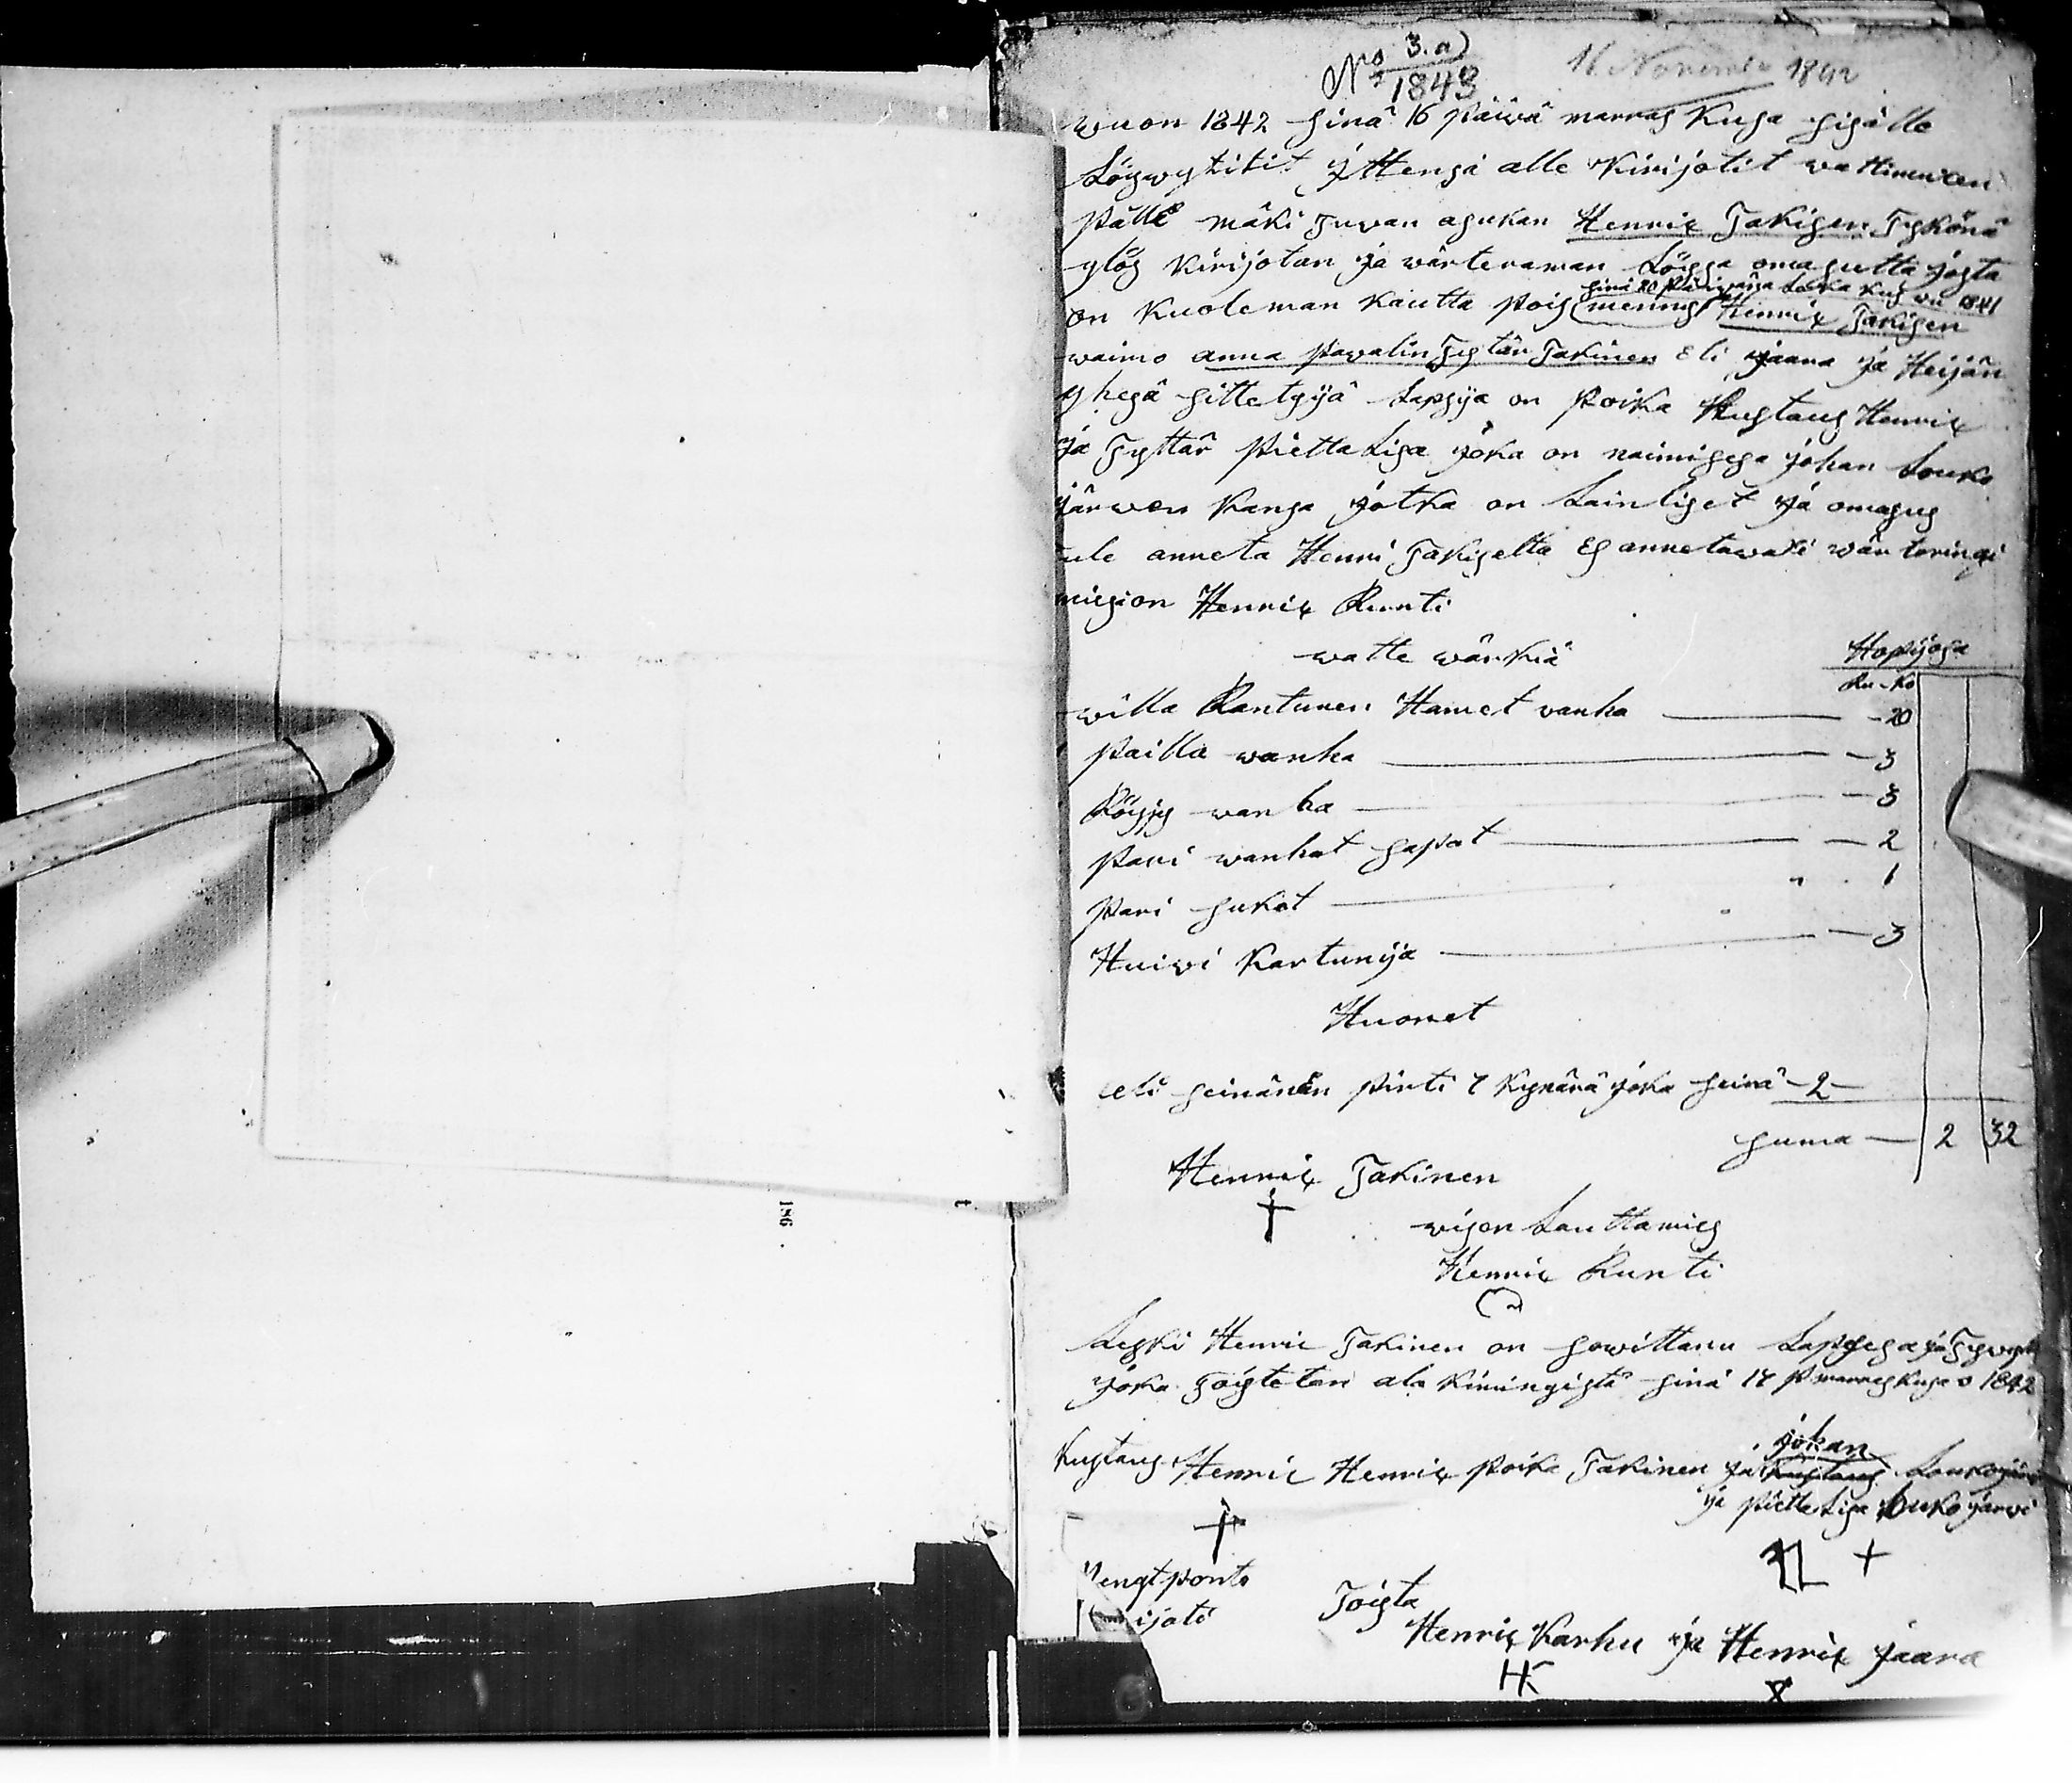 No 3.a) 1843
16 November 1842
wuon 1842 sinä 16 päiwä marras kusa sisälle
Löyswystitit yttensä alle kirijotit wattimuxen
pälle mäki Tuwan asukan Henrix Takisen Tykönä
ylös kirijotan ja wärteraman Löyssa omasutta josta
sinä 20 päiwänsä Loka kus wu 1841
on kuoleman kautta pois mennys Henrix Takisen
waimo anna pawalin Tystär Takinen Eli jaara ja Heijän
yhesä sittetyijä Lapsija on poika Kustaus Henrix
ja Tyttär pietta Lisa joka on naimisesa johan Louko
järwen kansa jotka on Lainliset ja omasus
ule anneta Henri Takiselta Es annetawaxi wärteringi
miesion Henrix Runti
watte wärkiä
Hopijosa
Ru - Ko
willa Rantunen Hamet vanha - 20
pailla wanha - 3
Röyjy wanha - 3
pari wanhat sapat - 2
pari sukat " 1
Huiwi kartunija - 3
Huonet
seinänen pirti 7 kynärä joka seinä - 2 -
suma - 2 32
Henrix Takinen
wisen Lauttamies
Henrix Runti
Leski Henrix Takinen on sowittanu Lapsesa ja
joka Toistetan ala kimingistä sinä 17 p marras kusa o 1842
Kustaus Henric Henrix poika Takinen ja johan Loukojärwi
ja pietta Lisa Loukojärwi
Bengt ponto
kirijoti
Toista
Henrix Karhu ja Henrix jaara
HK